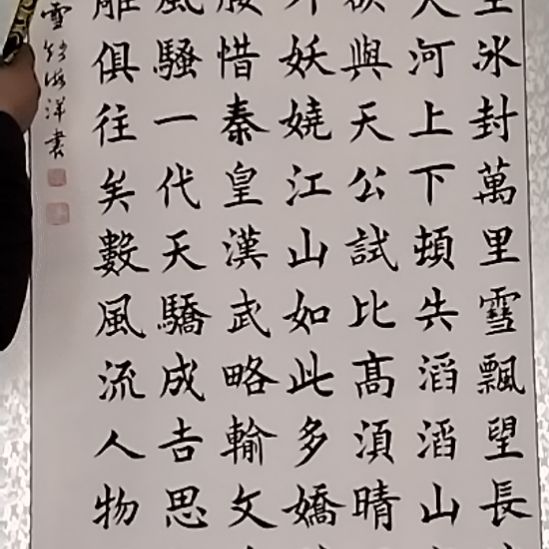 里冰封萬里雪飄望長
大河上下頓失滔滔山
欲與天公試比髙須晴
外妖嬈江山如此多嬌
腰惜秦皇漢武略輸文
風騷一代天驕成吉思
雕俱往矣數風流人物
雪海洋書